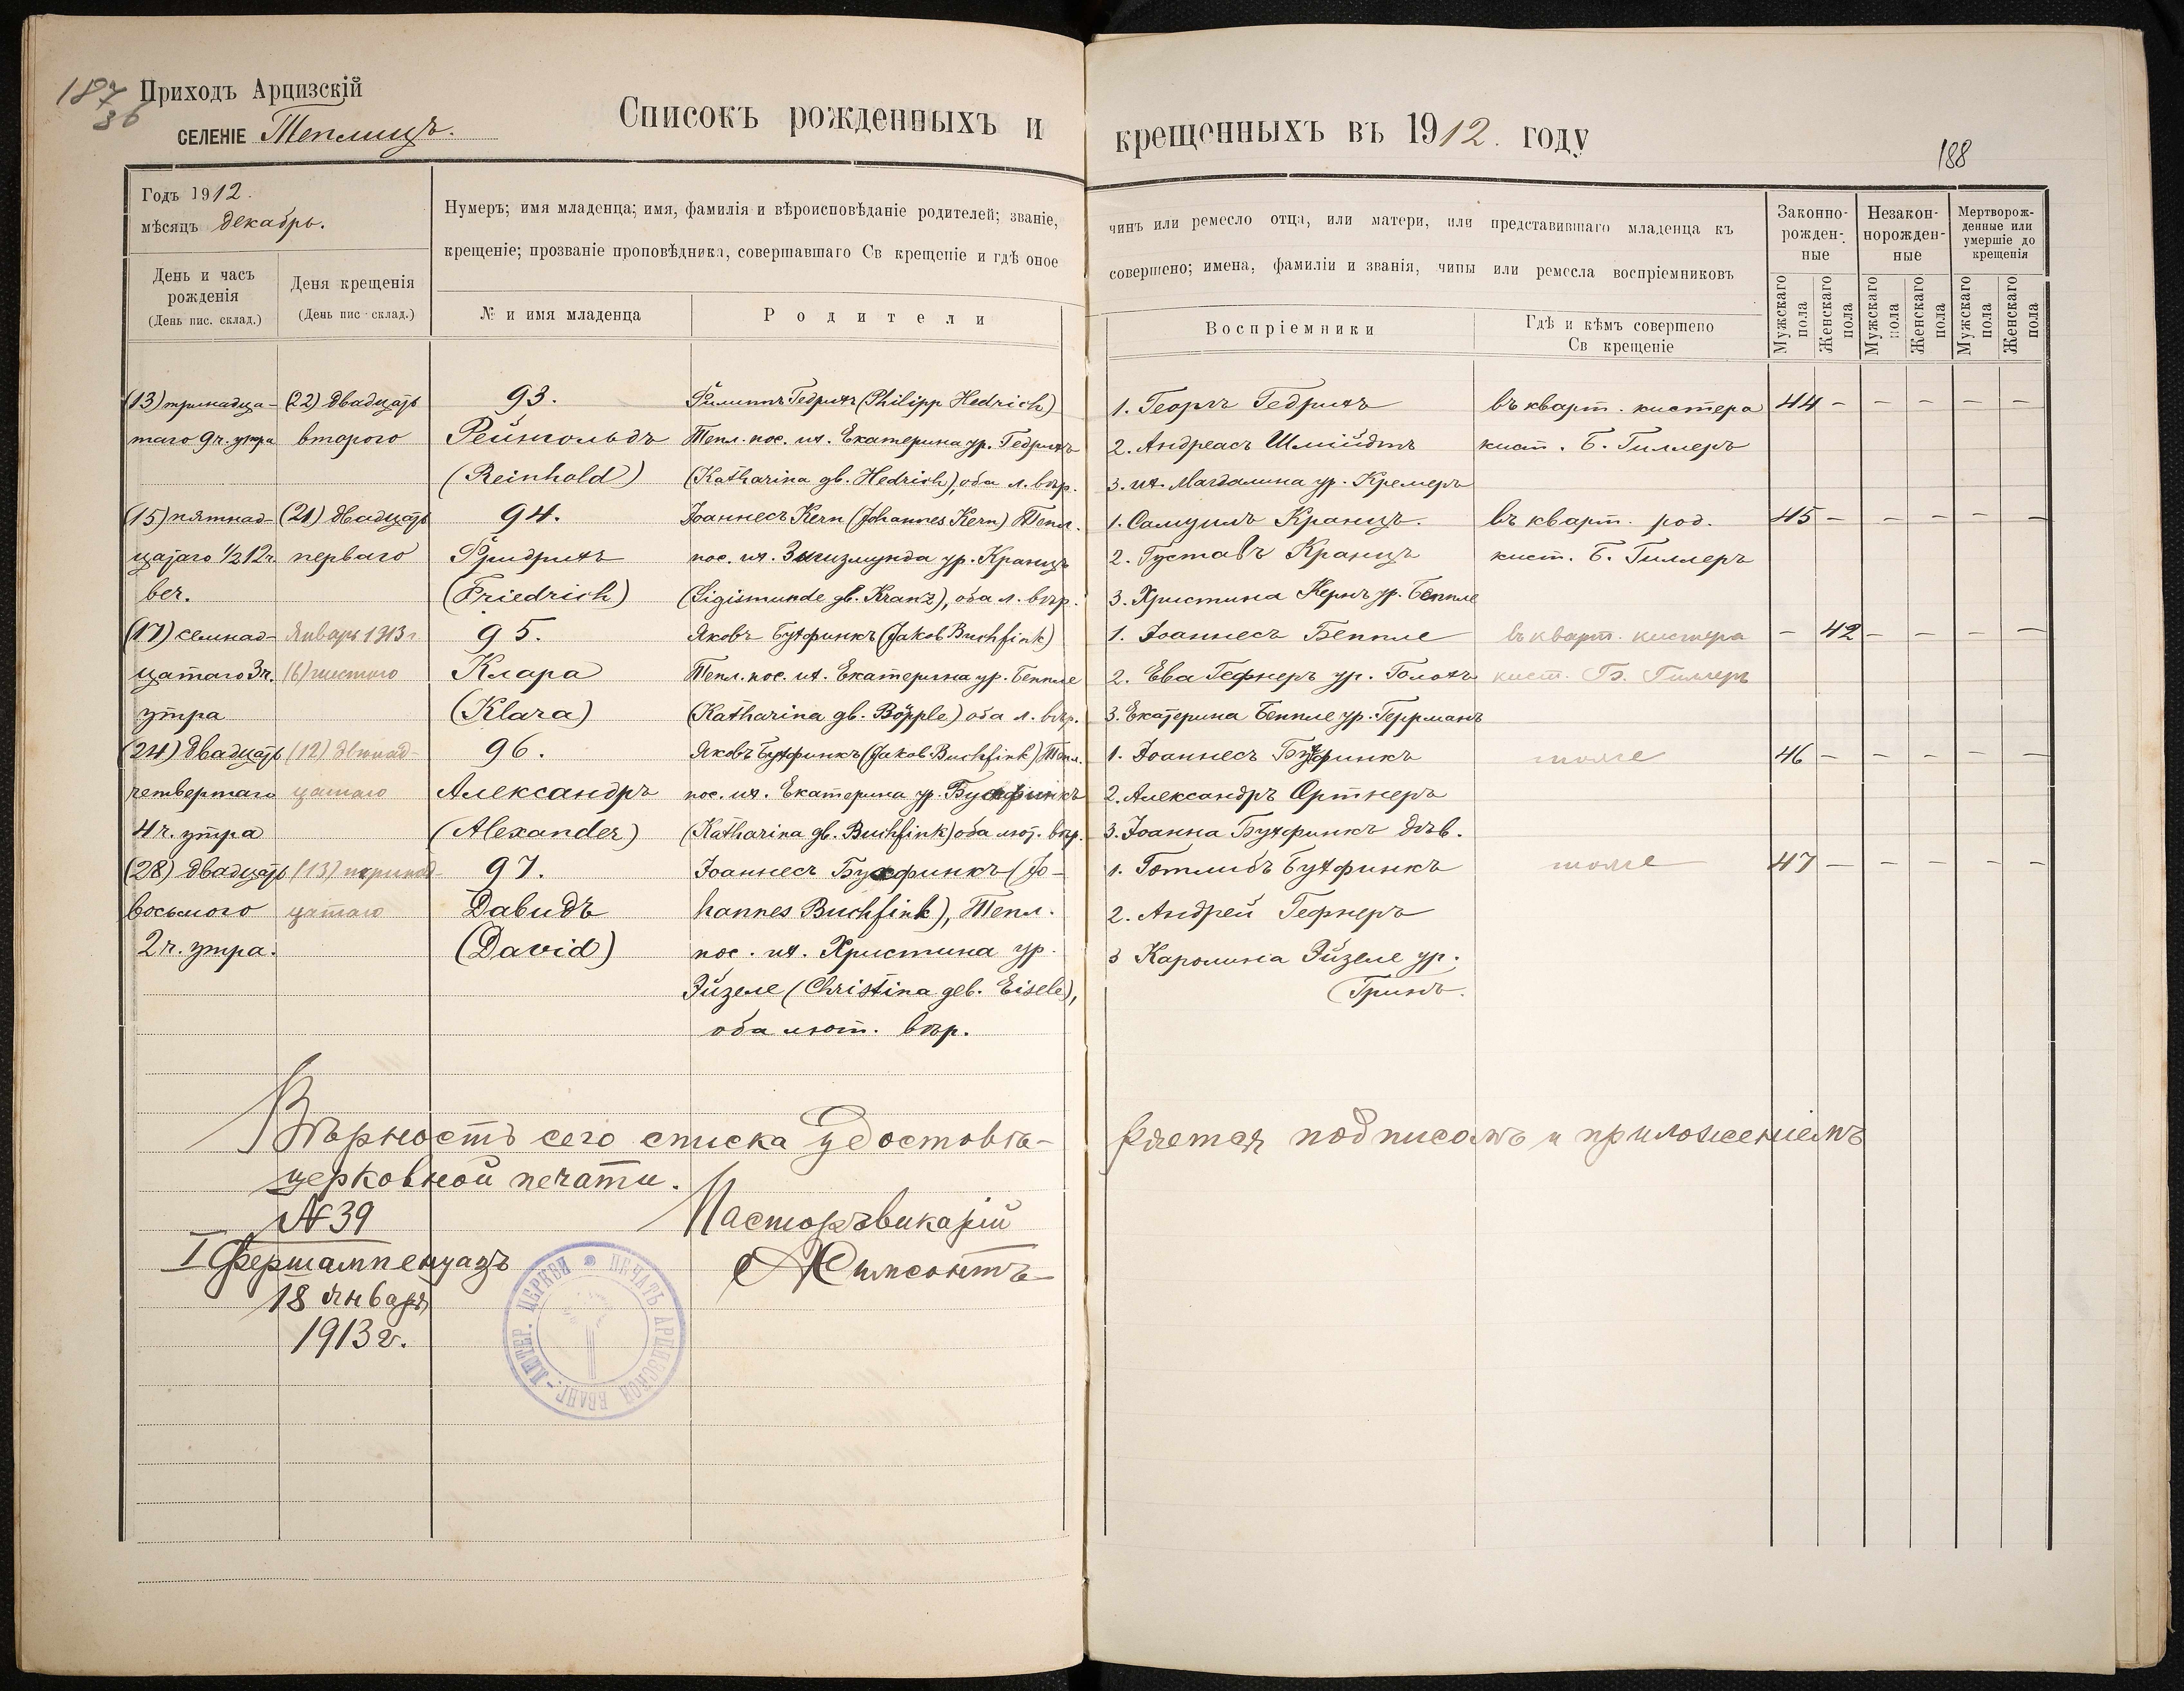 187
36
Приходъ Арцизскій
СЕЛЕНІЕ Теплицъ.
Списокъ рожденныхъ и крещенныхъ въ 1912. году
188
Годъ 1912.
мѣсяцъ Декабрь.
Нумеръ; имя младенца; имя, фамилія и вѣроисповѣданіе родителей; званіе, чинъ или ремесло отца, или матери, или представившаго младенца къ
крещеніе; прозваніе проповѣдника, совершавшаго Св крещеніе и гдѣ оное совершено; имена, фамиліи и званія, чины или ремесла воспріемниковъ
День и часъ
рожденія
(День пис. склад.)
Деня крещенія
(День пис склад.)
№ и имя младенца
Родители
Воспріемники
Гдѣ и кѣмъ совершено
Св крещеніе
Законно-
рожден-
ные
Незакон-
норожден-
ные
Мертворож-
денные или
умершіе до
крещенія
Мужскаго пола
Женскаго пола
Мужскаго пола
Женскаго пола
Мужскаго пола
Женскаго пола
(13) тринадца- (22) двадцать 93. Филиппъ Гедрихъ (Philipp Hedrich) 1. Георгъ Гедрихъ въ кварт. кистера 44 – – – – –
таго 9 ч. утра второго Рейнгольдъ Тепл. пос. их. Екатерина ур. Гедрихъ 2. Андреасъ Шмійдтъ кист. Б. Гиллеръ
(Reinhold) (Katharina gb. Hedrich), оба л. вѣр. 3. их. Магдалина ур. Кремеръ
(15) пятнад- (21) двадцать 94. Іоаннесъ Kern (Johannes Kern) Тепл. 1. Самуилъ Кранцъ. въ кварт. род. 45 – – – – –
цатаго 1/2 12 ч. перваго Фридрихъ пос. их. Зигизмунда ур. Кранцъ 2. Густавъ Кранцъ кист. Б. Гиллеръ
веч. (Friedrich) (Sigismunde gb. Kranz), оба л. вѣр. 3. Христина Кернъ ур. Беппле
(17) семнад- Январь 1913 г. 95. Яковъ Бухфинкъ (Jakob Buchfink) 1. Іоаннесъ Беппле въ кварт. кистера – 42 – – – –
цатаго 3 ч. (6) шестого Клара Тепл. пос. их. Екатерина ур. Беппле 2. Ева Гефнеръ ур. Голохъ кист. Б. Гиллеръ
утра (Klara) (Katharina gb. Böpple) оба л. вѣр. 3. Екатерина Беппле ур. Геррманъ
(24) двадцать (12) двѣнад- 96. Яковъ Бухфинкъ (Jakob Buchfink) Тепл. 1. Іоаннесъ Бухфинкъ тоже 46 – – – – –
четвертаго цатаго Александръ пос. их. Екатерина ур. Бухфинкъ 2. Александръ Ортнеръ
4 ч. утра (Alexander) (Katharina gb. Buchfink) оба лют. вѣр. 3. Іоанна Бухфинкъ дѣв.
(28) двадцать (13) тринад- 97. Іоаннесъ Бухфинкъ (Jo- 1. Готлибъ Бухфинкъ тоже 47 – – – – –
восьмого цатаго Давидъ hannes Buchfink), Тепл. 2. Андрей Гефнеръ
2 ч. утра. (David) пос. их. Христина ур. 3 Каролина Эйзеле ур.
Эйзеле (Christina geb. Eisele), Гринъ.
оба лют. вѣр.
Вѣрность сего списка удостовѣ- ряется подписомъ и приложеніемъ
церковной печати.
№ 39 Пасторъ-викарій
I Фершампенуазъ
18 января
1913 г.
ПЕЧАТЬ АРЦИЗСКОЙ ЕВАНГ.-ЛЮТЕР. ЦЕРКВИ